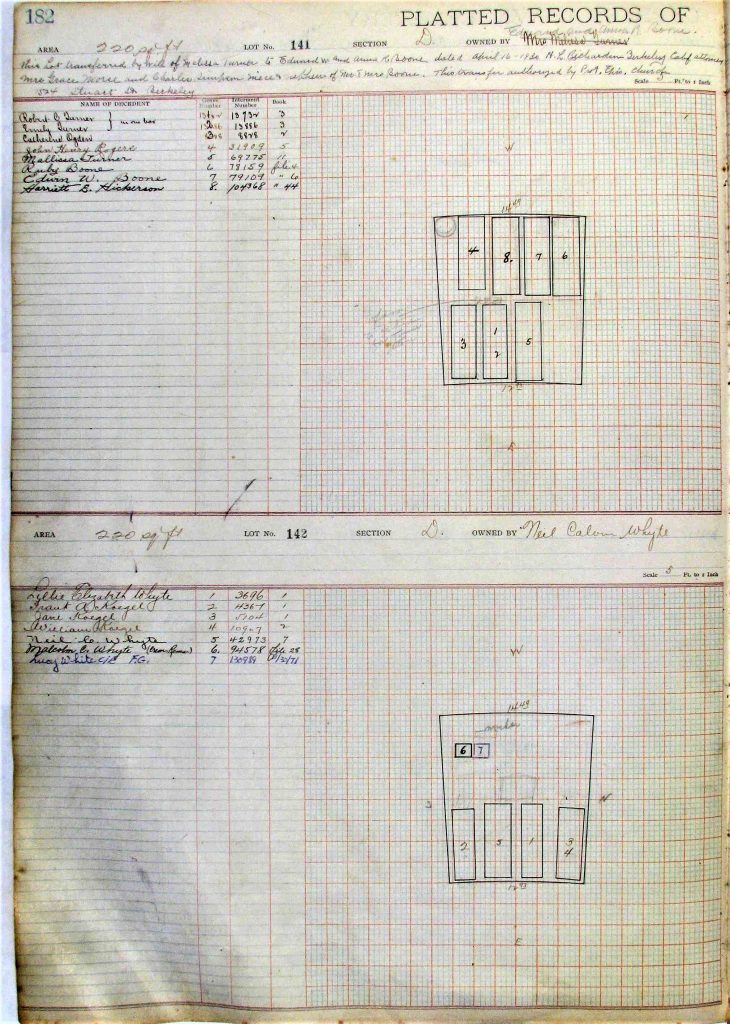 182
PLATTED RECORDS OF
Edward and Anna K. Boone.
AREA 220 sq ft LOT No. 141 SECTION D. OWNED BY Mrs Turner
This Lot transferred by will of Melissa Turner to Edward W and Anna K. Boone dated April 16-1930 H.L. Richardson Berkeley Calif attorney
Mrs Grace Morse and Charlie Simpson niece & nephew of Mr & Mrs Boone. This transfer authorized by
1524 Stuart St Berkeley
Scale Ft. to 1 Inch
NAME OF DECEDENT Grave Number Interment Number Book
Robert G Turner } in one box 1 13732 3
Emily Turner 2 13886 3
Catherine Ogden 3 8828 2
John Henry Rogers 4 31909 5
Mallissa Turner 5 69775 11
Ruby Boone 6 78159 file 4
Edwin W. Boone 7 79109 " 6
Harriett E. Hickerson 8. 104368 " 44
W
14 49
4 8. 7 6
3 1 2 5
12 93
E
AREA 220 sq ft LOT No. 142 SECTION D. OWNED BY Neil Calvin Whyte
Scale 5 Ft. to 1 Inch
Lillie Elizabeth Whyte 1 3696 1
Frank A. Koegel 2 4367 1
Jane Koegel 3 5104 1
William Koegel 4 10907 2
Neil C. Whyte 5 42973 7
Malcolm C. Whyte 6. 94578 file 28
Lucy White C/C F.G. 7 130989
W
14 49
marker
6 7
S N
2 5 1 3 4
12 93
E